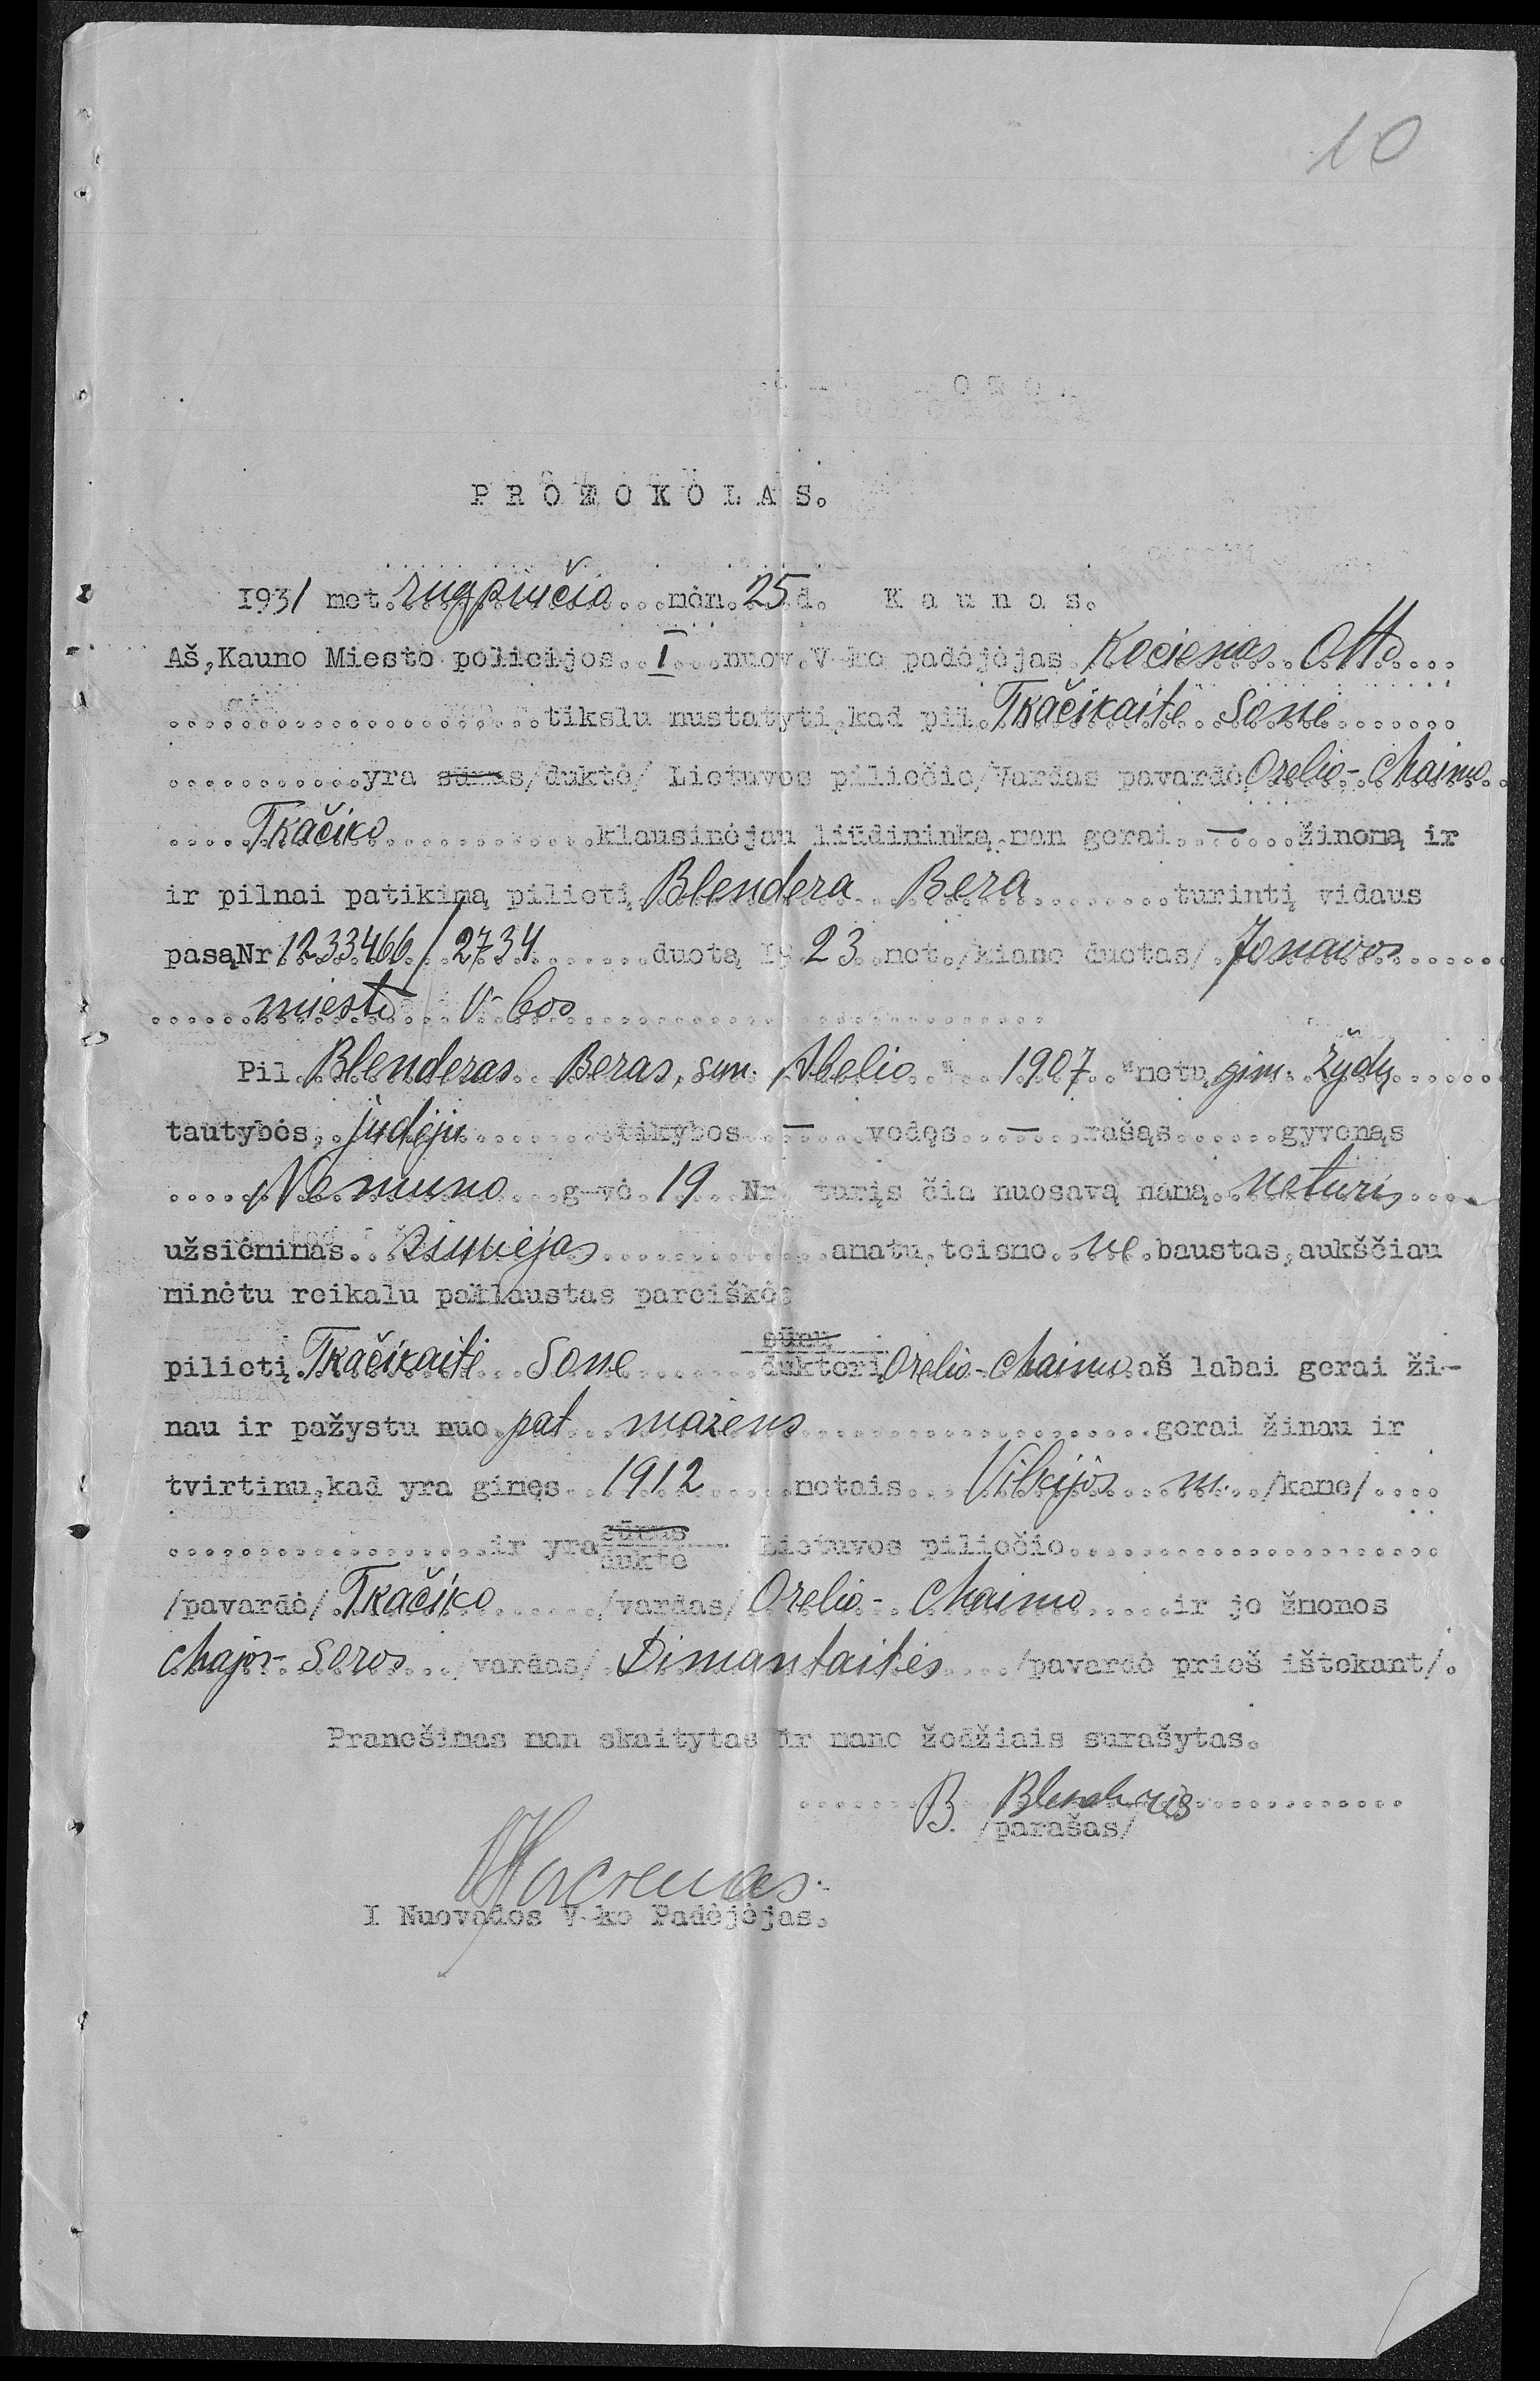 10
PROTOKOLAS.
1931 met. rugpiučio...mėn. 25 d. Kaunas.
Aš, Kauno Miesto policijos..I...nuov. V-ko padėjėjas Kocienas Otto...
....................tikslu nustatyti, kad pil. Tkačikaitė Sone.......
...........yra ~~sūnus~~/duktė/ Lietuvos piliečio/Vardas pavardė Orelio-Chaimo.
....Tkačiko............klausinėjau liūdininką, man gerai..—...žinomą ir
ir pilnai patikimą pilietį Blendera Bera..........turintį vidaus
pasąNr 1233466/2734.......duotą 1923 met./kieno duotas/ Jonavos......
......miesto V-bos...........................
Pil. Blenderas Beras, sun. Abelio " 1907 "metų gim. žydų......
tautybės, judėju........tikybos...—....vedęs...—...rašąs......gyvenąs
.....Nemuno...g-vė. 19...Nr. turįs čia nuosavą namą. neturis....
užsiėmimas..............amatu, teismo. ne. baustas, aukščiau
minėtu reikalu paklaustas pareiškė:
pilietį. Tkačikaitė Sone......~~sūnų~~ dukterį Orelio-Chaimo aš labai gerai ži-
nau ir pažystu nuo. pat mažens....................gerai žinau ir
tvirtinu, kad yra gimęs. 1912......metais... Vilkijos m.../kame/....
..................ir yra ~~sūnus~~ duktė Lietuvos piliečio.....................
/pavardė/ Tkačiko......./vardas/ Orelio-Chaimo.....ir jo žmonos
Chajos-Soros.../vardas/. Dimantaitės..../pavardė prieš ištekant/.
Pranešimas man skaitytas ir mano žodžiais surašytas.
B. Blenderis
/parašas/
Kocienas.
I Nuovados V-ko Padėjėjas.